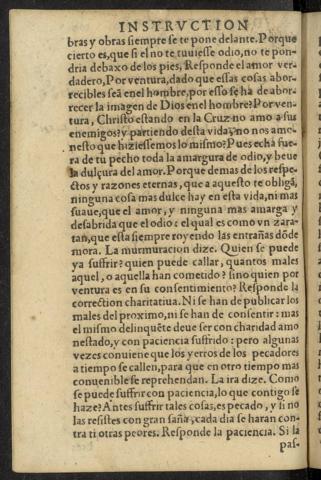 INSTRVCTION
bras y obras siempre se te pone delante. Porque
cierto es, que si el no te tuuiesse odio, no te pon-
dria debaxo de los pies, Responde el amor ver-
dadero, Por ventura, dado que essas cosas abor-
recibles seā en el hombre, por esso se ha de abor-
recer la imagen de Dios en el hombre? Por ven-
tura, Christo estando en la Cruz no amo a sus
enemigos? y partiendo desta vida, no nos amo-
nesto que hiziessemos lo mismo? Pues echa fue-
ra de tu pecho toda la amargura de odio, y beue
la dulçura del amor. Porque demas de los respe-
ctos y razones eternas, que a aquesto te obligā,
ninguna cosa mas dulce hay en esta vida, ni mas
suaue, que el amor, y ninguna mas amarga y
desabrida que el odio: el qual es como vn zara-
tan, que esta siempre royendo las entrañas dōde
mora. La murmuracion dize. Quien se puede
ya suffrir? quien puede callar, quantos males
aquel, o aquella han cometido? sino quien por
ventura es en su consentimiento? Responde la
correction charitatiua. Ni se han de publicar los
males del proximo, ni se han de consentir: mas
el mismo delinquēte deue ser con charidad amo
nestado, y con paciencia suffrido: pero algunas
vezes conuiene que los yerros de los pecadores
a tiempo se callen, para que en otro tiempo mas
conuenible se reprehendan. La ira dize. Como
se puede suffrir con paciencia, lo que contigo se
haze? Antes suffrir tales cosas, es pecado, y si no
las resistes con gran saña, cada dia se haran con-
tra ti otras peores. Responde la paciencia. Si la
pas-